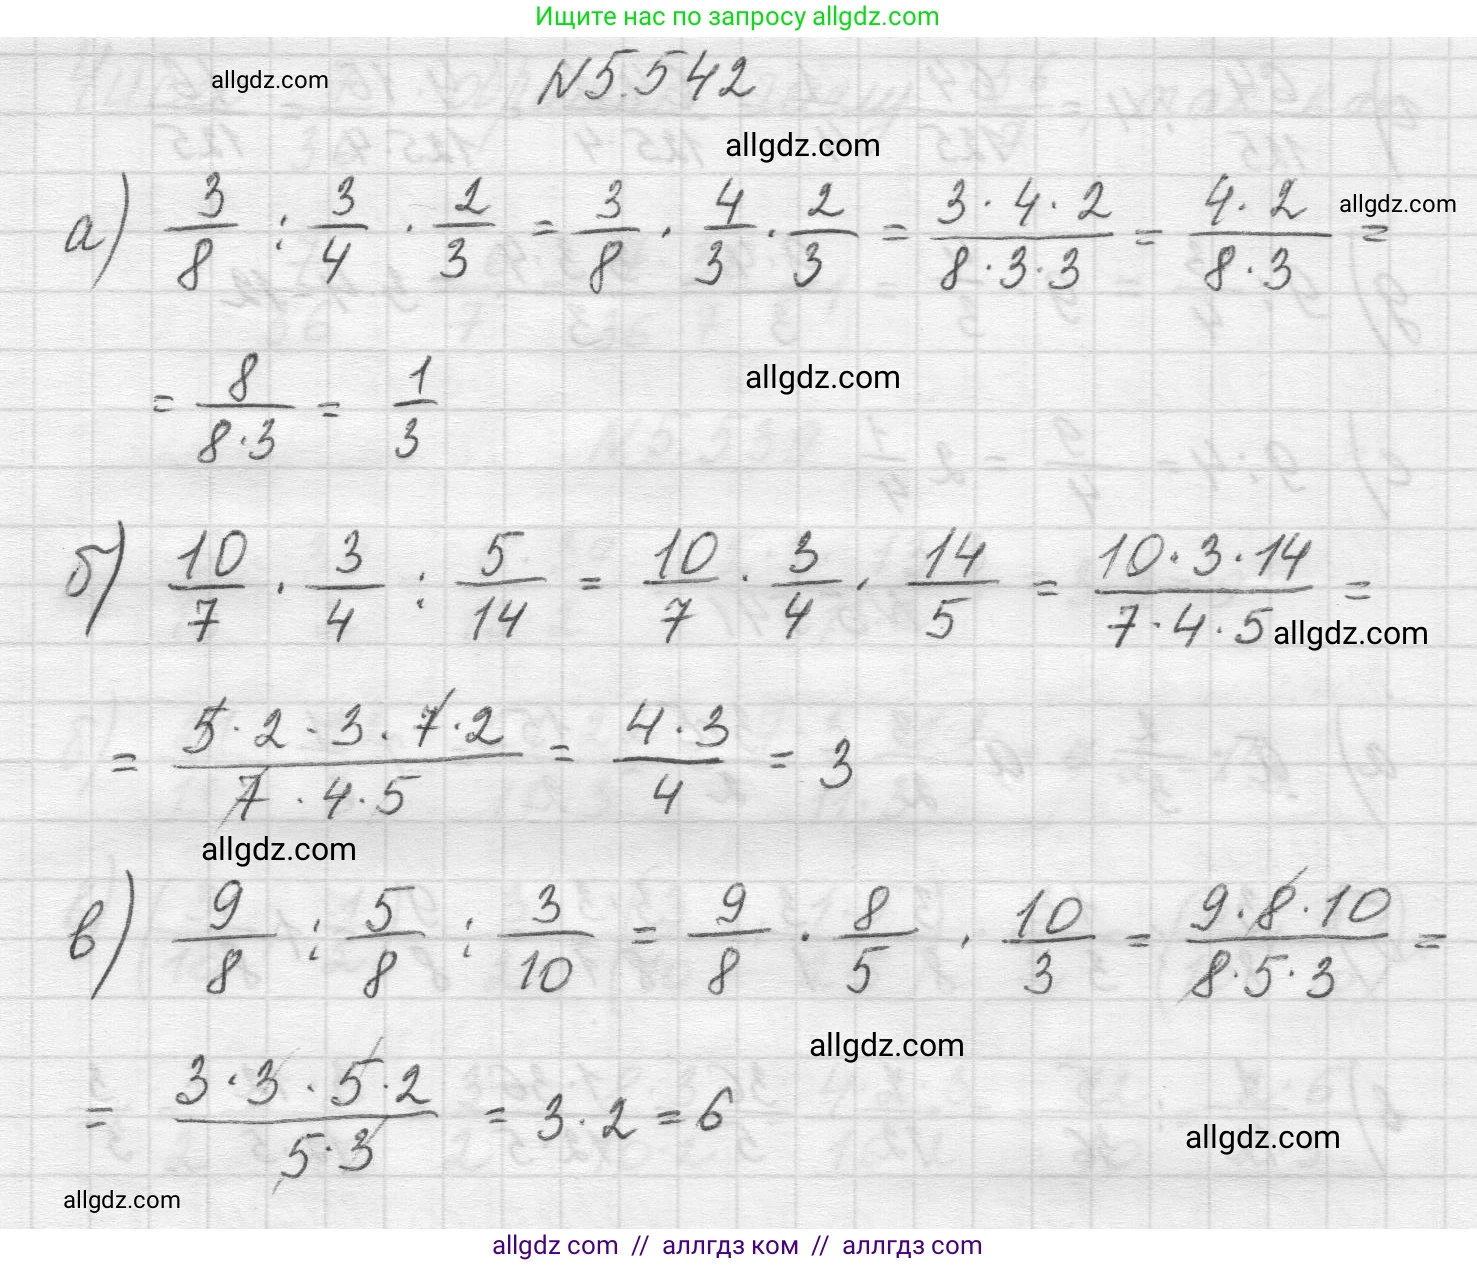 Ищите нас по запросу allgdz.com
allgdz.com
N5.542
allgdz.com
а) 3/8 : 3/4 · 2/3 = 3/8 · 4/3 · 2/3 = 3·4·2/8·3·3 = 4·2/8·3 =
allgdz.com
= 8/8·3 = 1/3
allgdz.com
б) 10/7 · 3/4 : 5/14 = 10/7 · 3/4 · 14/5 = 10·3·14/7·4·5 =
allgdz.com
= 5·2·3·7·2/7·4·5 = 4·3/4 = 3
allgdz.com
в) 9/8 : 5/8 : 3/10 = 9/8 · 8/5 · 10/3 = 9·8·10/8·5·3 =
allgdz.com
= 3·3·5·2/5·3 = 3·2 = 6
allgdz.com
allgdz.com
allgdz com // аллгдз ком // аллгдз com